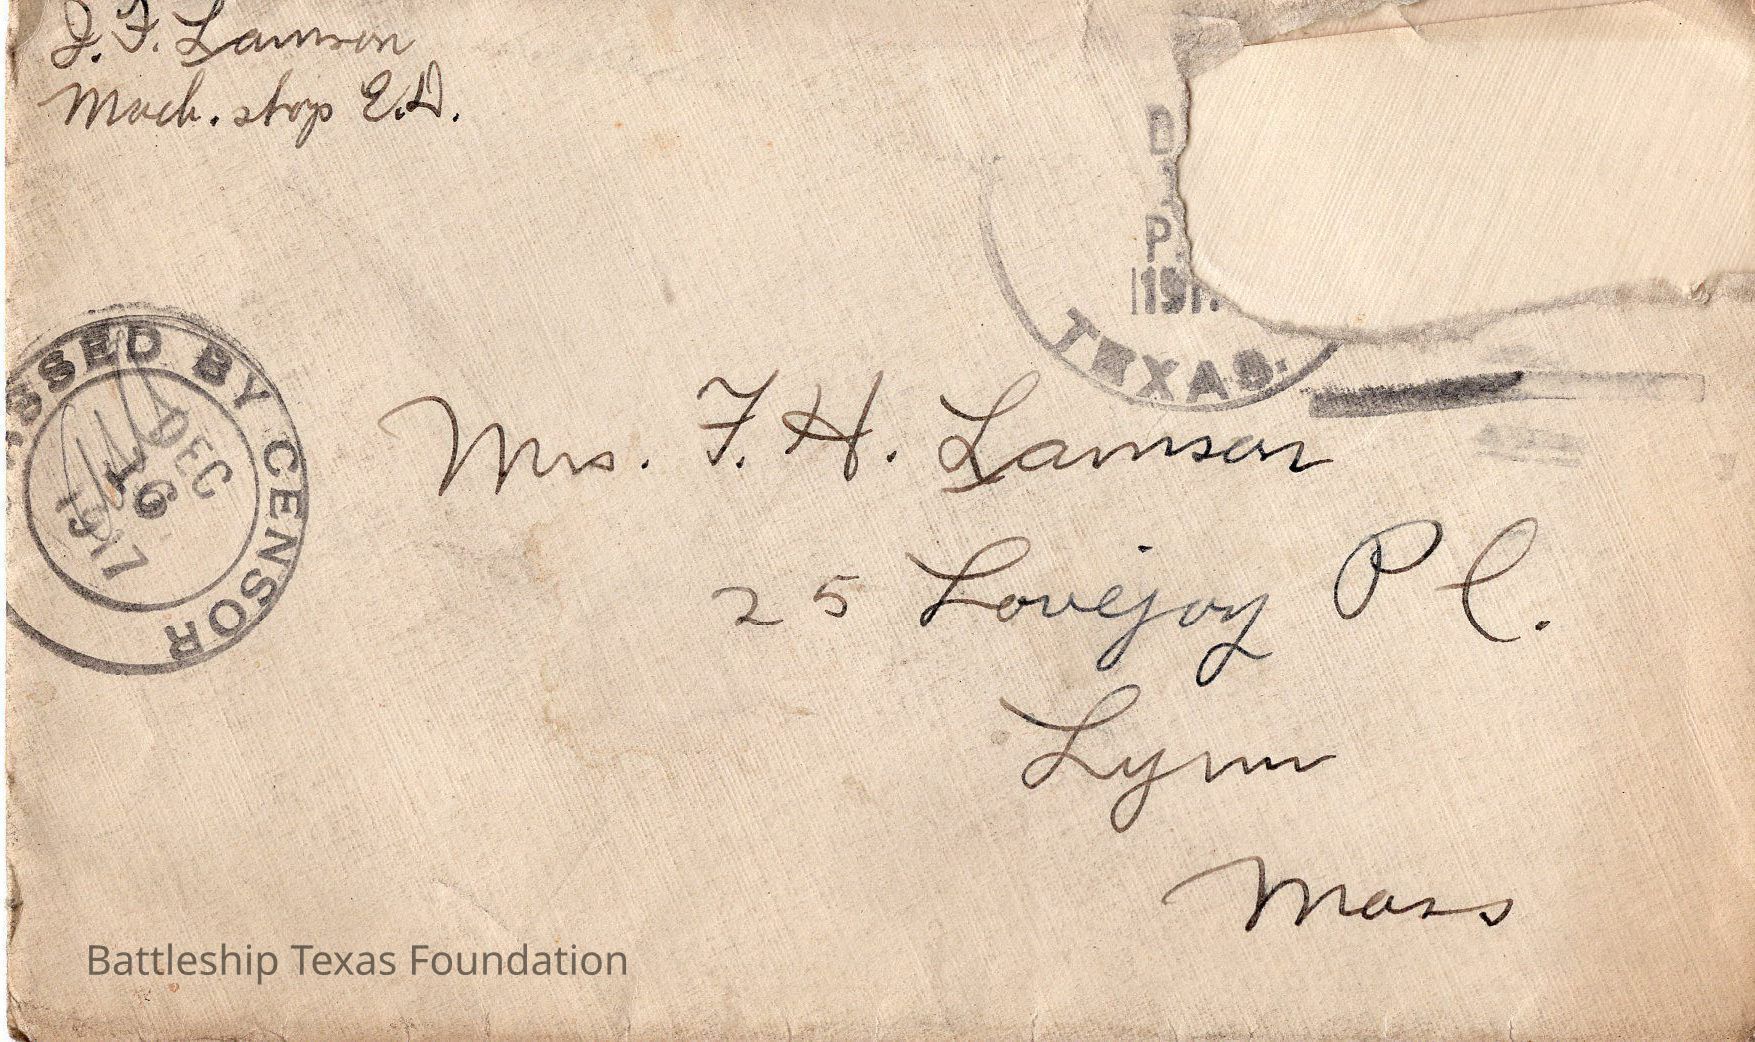 J. F. Lamson
Mach. shop E.D.
D
1
P.
191
TEXAS.
SSED BY CENSOR
DEC
16
1917
Mrs. F. H. Lamson
25 Lovejoy Pl.
Lynn
Mass
Battleship Texas Foundation